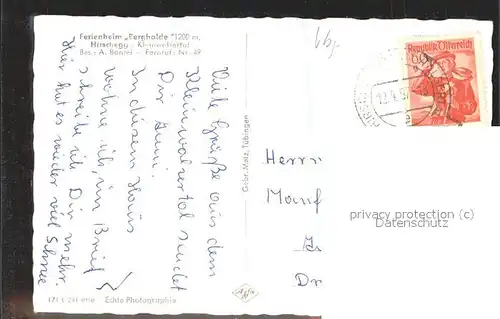 Ferienheim „Bergheide" 1200 m,
Hirschegg - Kleinwalsertal
Bes.: A. Bantel - Fernruf: Nr. 49
Viele Grüße aus dem
Kleinwalsertal sendet
Dir
In diesem Haus
wohne ich, im Brief
schreibe ich Dir mehr.
Hier hat es wieder viel Schnee
Gebr. Metz, Tübingen
Echte Photographie
Republik Österreich
Herrn
Manf
privacy protection (c)
Datenschutz